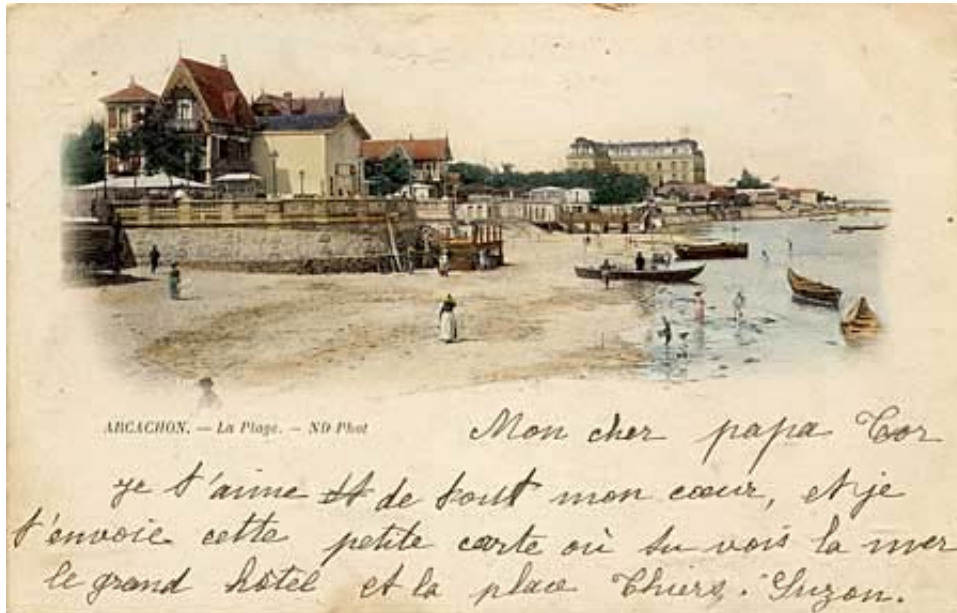 ARCACHON. — La Plage. — ND Phot
Mon cher papa Cor
je t'aime de tout mon cœur, et je
t'envoie cette petite carte où tu vois la mer
le grand hôtel et la place Thiers. Suzon.